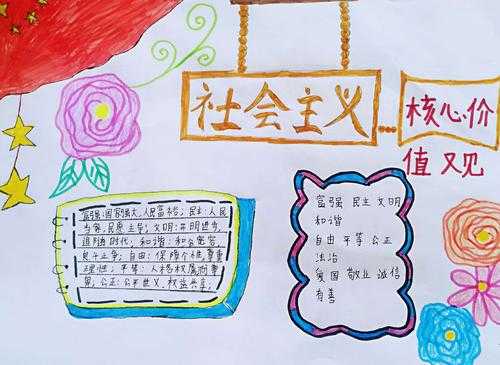 社会主义
核心价
值观
富强:国家强大,人民富裕;民主:人民
当家,民意主导;文明:开明进步,
追随时代;和谐:和合
自由:保障个性,尊重
理性;平等:人格权
公正:公平正义,权益共享;
富强 民主 文明
和谐
自由 平等 公正
法治
爱国 敬业 诚信
有善